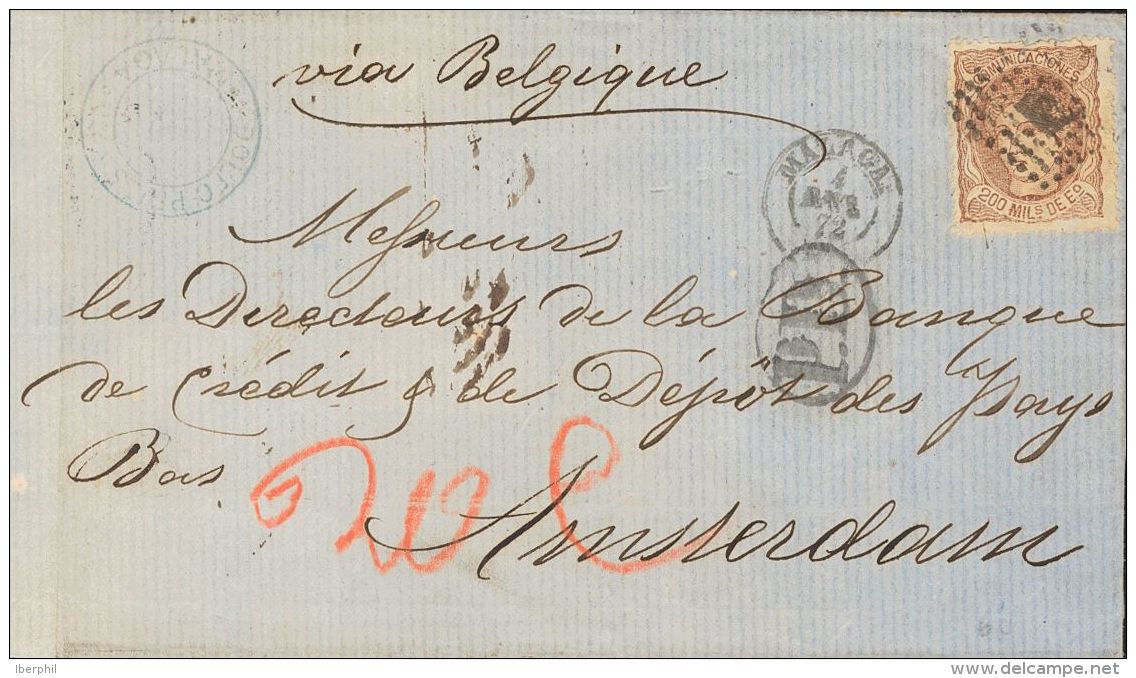 via Belgique
COMUNICACIONES
200 MILS DE EO
MALAGA
4
ENE
72
P.D.
Messieurs
les Directeurs de la Banque
de Crédit & de Dépôt des Pays
Bas
Amsterdam
Iberphil
delcampe.net